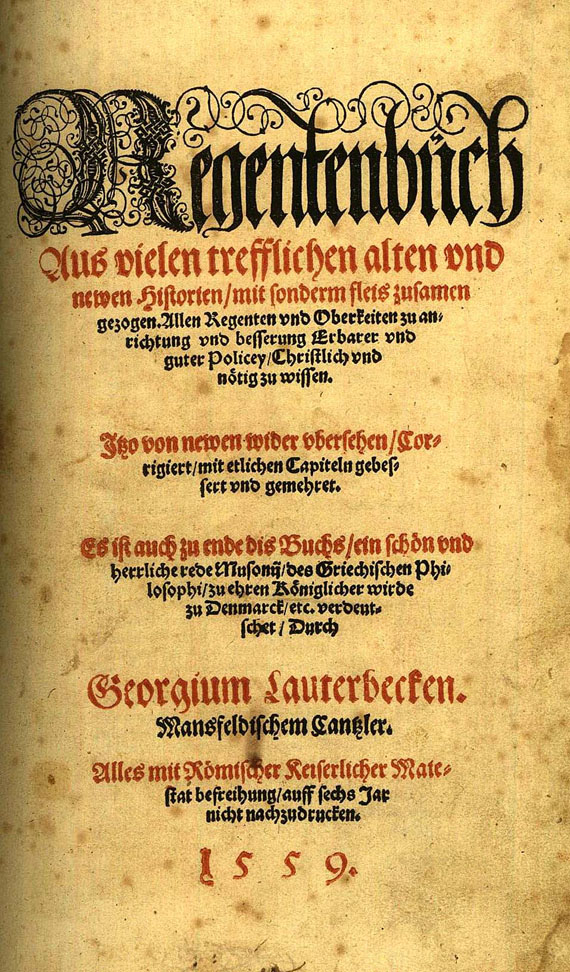 Regentenbuͤch
Aus vielen trefflichen alten vnd
newen Historien/mit sonderm fleis zusamen
gezogen. Allen Regenten vnd Oberkeiten zu an-
richtung vnd besserung Erbarer vnd
guter Policey/Christlich vnd
nötig zu wissen.
Itzo von newen wider vbersehen/Cor-
rigiert/mit etlichen Capiteln gebes-
sert vnd gemehret.
Es ist auch zu ende dis Buchs/ein schön vnd
herrliche rede Musonij/des Griechischen Phi-
losophi/zu ehren Königlicher wirde
zu Denmarck/etc. verdeut-
schet/Durch
Georgium Lauterbecken.
Mansfeldischem Cantzler.
Alles mit Römischer Keiserlicher Maie-
stat befreihung/auff sechs Jar
nicht nachzudrucken.
1559.